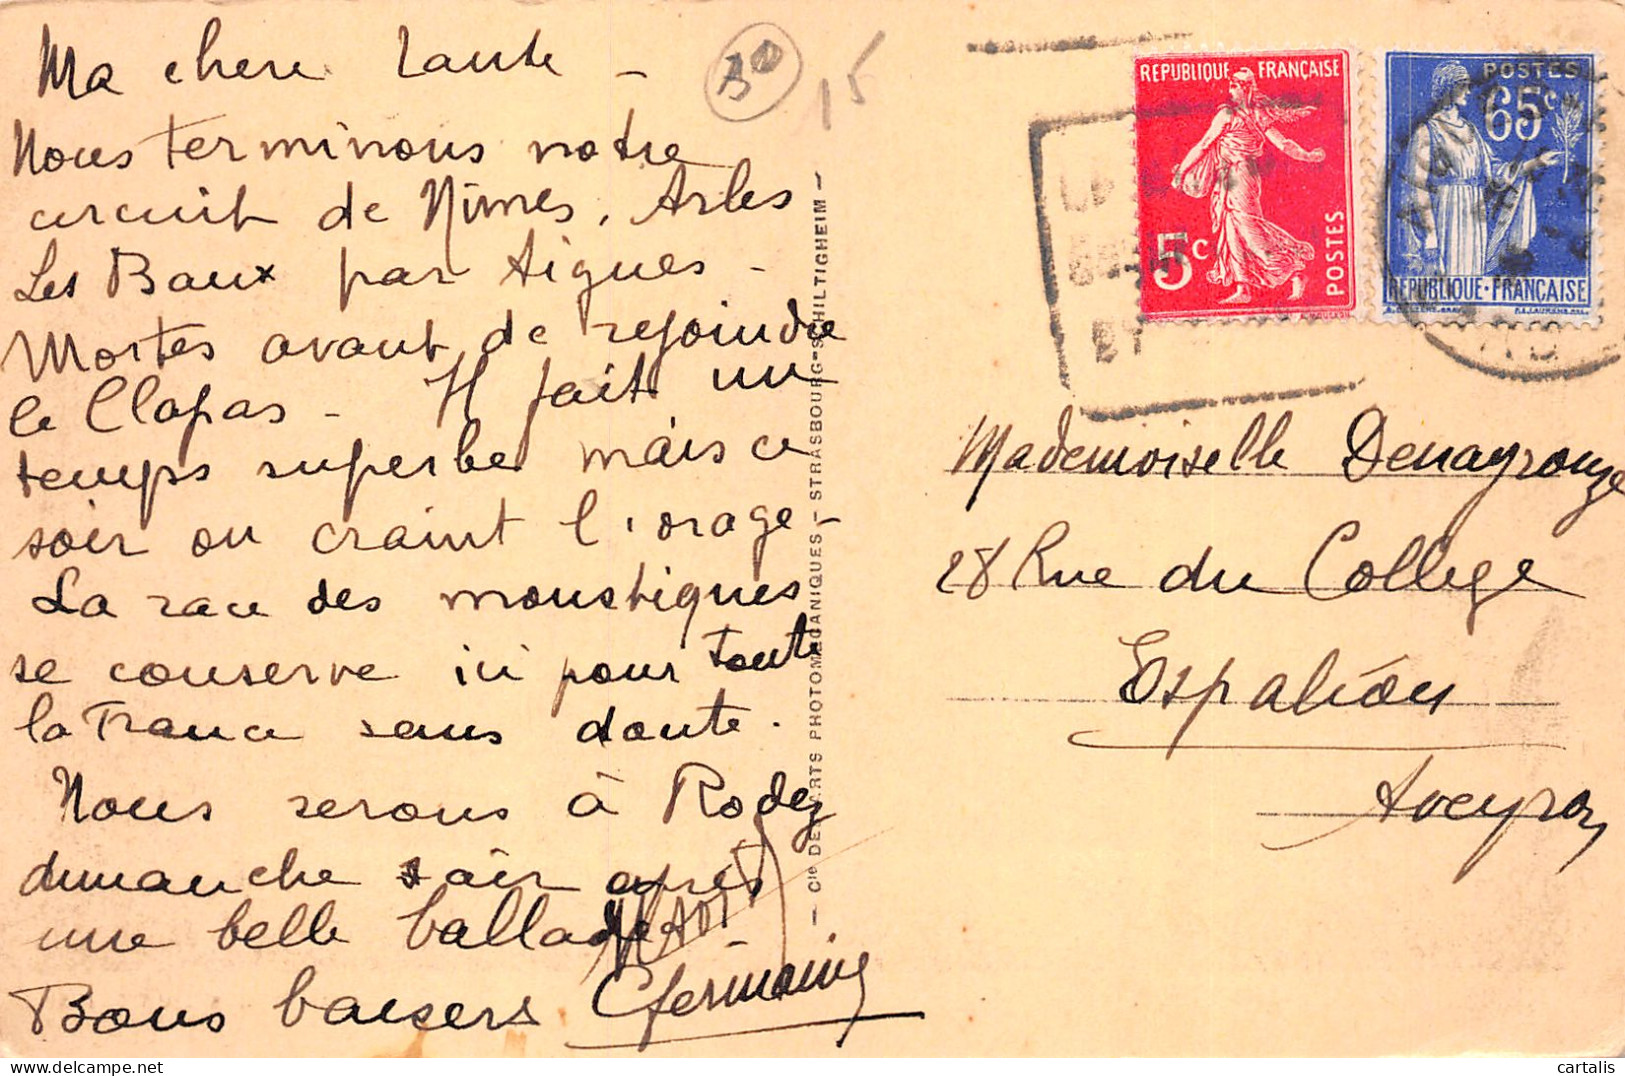 Ma chere Tante -
Nous terminons notre
circuit de Nîmes, Arles
Les Baux par Aigues -
Mortes avant de rejoindre
le Clapas - Il fait un
temps superbe mais ce
soir on craint l'orage -
La race des moustiques
se conserve ici pour toute
la France sans doute.
Nous serons à Rodez
dimanche soir après
une belle ballade -
Bons baisers Germaine
15
- Cie DES ARTS PHOTOMÉCANIQUES - STRASBOURG-SCHILTIGHEIM -
REPUBLIQUE FRANÇAISE
5c
POSTES
POSTES
65c
REPUBLIQUE-FRANÇAISE
Mademoiselle Denayrouze
28 Rue du College
Espalion
Aveyron
cartalis.com